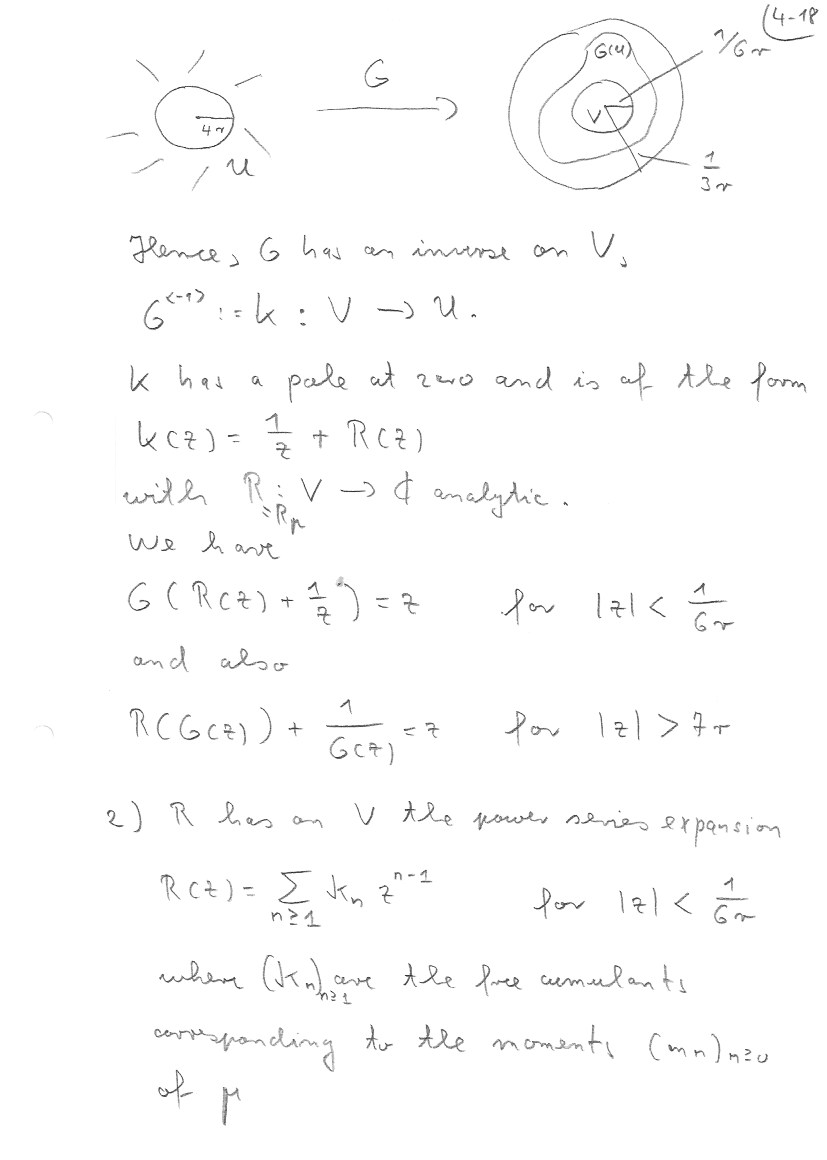 4-18
G
G(U)
1/6r
4r
V
U
1/3r
Hence, G has an inverse on V,
G^{<-1>} := K : V → U.
K has a pole at zero and is of the form
K(z) = 1/z + R(z)
with R : V → ℂ analytic.
= R_μ
We have
G(R(z) + 1/z) = z for |z| < 1/6r
and also
R(G(z)) + 1/G(z) = z for |z| > 7r
2) R has on V the power series expansion
R(z) = ∑_{n≥1} κ_n z^{n-1} for |z| < 1/6r
where (κ_n)_{n≥1} are the free cumulants
corresponding to the moments (m_n)_{n≥0}
of μ